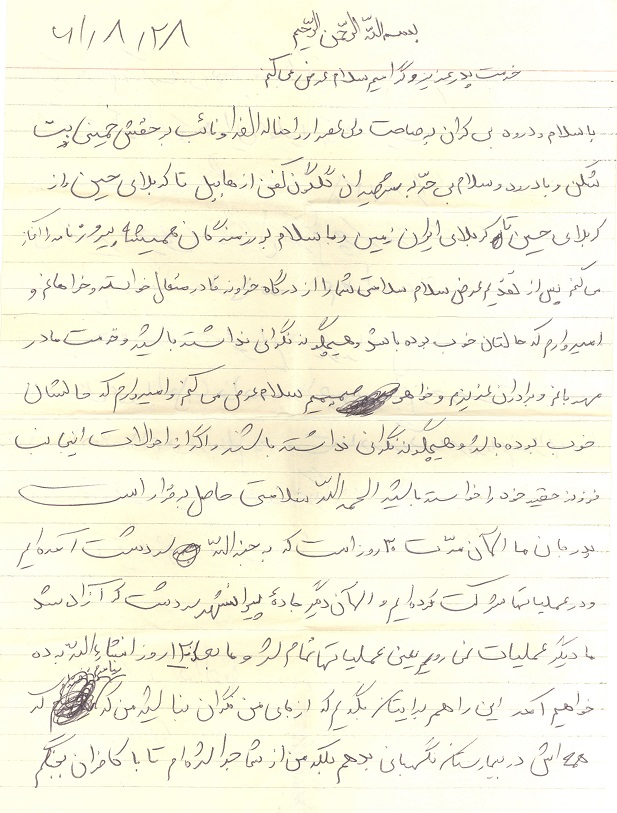 بسم الله الرحمن الرحیم
۶۱/۸/۲۸
خدمت پدر عزیز و گرامیم سلام عرض می کنم
با سلام و درود بی کران به صاحب ولی عصر ارواحناله الفدا و نائب بر حقش خمینی بت
شکن و با درود و سلام بی حد به شهیدان گلگون کفن از هابیل تا کربلای حسین و از
کربلای حسین تا کربلای ایران زمین و با سلام بر رزمندگان همیشه پیروز نامه را آغاز
می کنم پس از تقدیم عرض سلام سلامتی شما را از درگاه خداوند قادر متعال خواسته و خواهانم و
امیدوارم که حالتان خوب بوده باشد و هیچگونه نگرانی نداشته باشید و خدمت مادر
مهربانم و برادران عزیزم و خواهر صمیمیم سلام عرض می کنم و امیدوارم که حالشان
خوب بوده باشد و هیچگونه نگرانی نداشته باشند و اگر از احوالات اینجانب
فرزند حقیر خود را خواسته باشید الحمد الله سلامتی حاصل برقرار است
پدر جان ما الآن مدت ۳۰ روز است که به جبهه سردشت آمده ایم
و در عملیاتها شرکت کرده ایم و الآن دیگر جادۀ پیرانشهر سردشت که آزاد شد
ما دیگر عملیات نمی رویم یعنی عملیاتها تمام شد و ما بعد از ۱۲ روز انشاءالله به ده
خواهیم آمد این را هم برایتان بگویم که از جای من نگران نباشید من که که
همه اش در بیمارستان نگهبانی بدهم بلکه من از شما جدا شده ام تا با کافران بجنگم